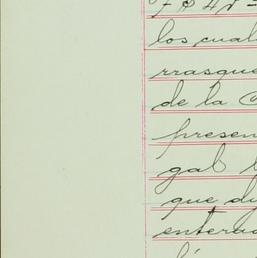 los cual
rrasque
de la C
presen
gal l
que du
enterad